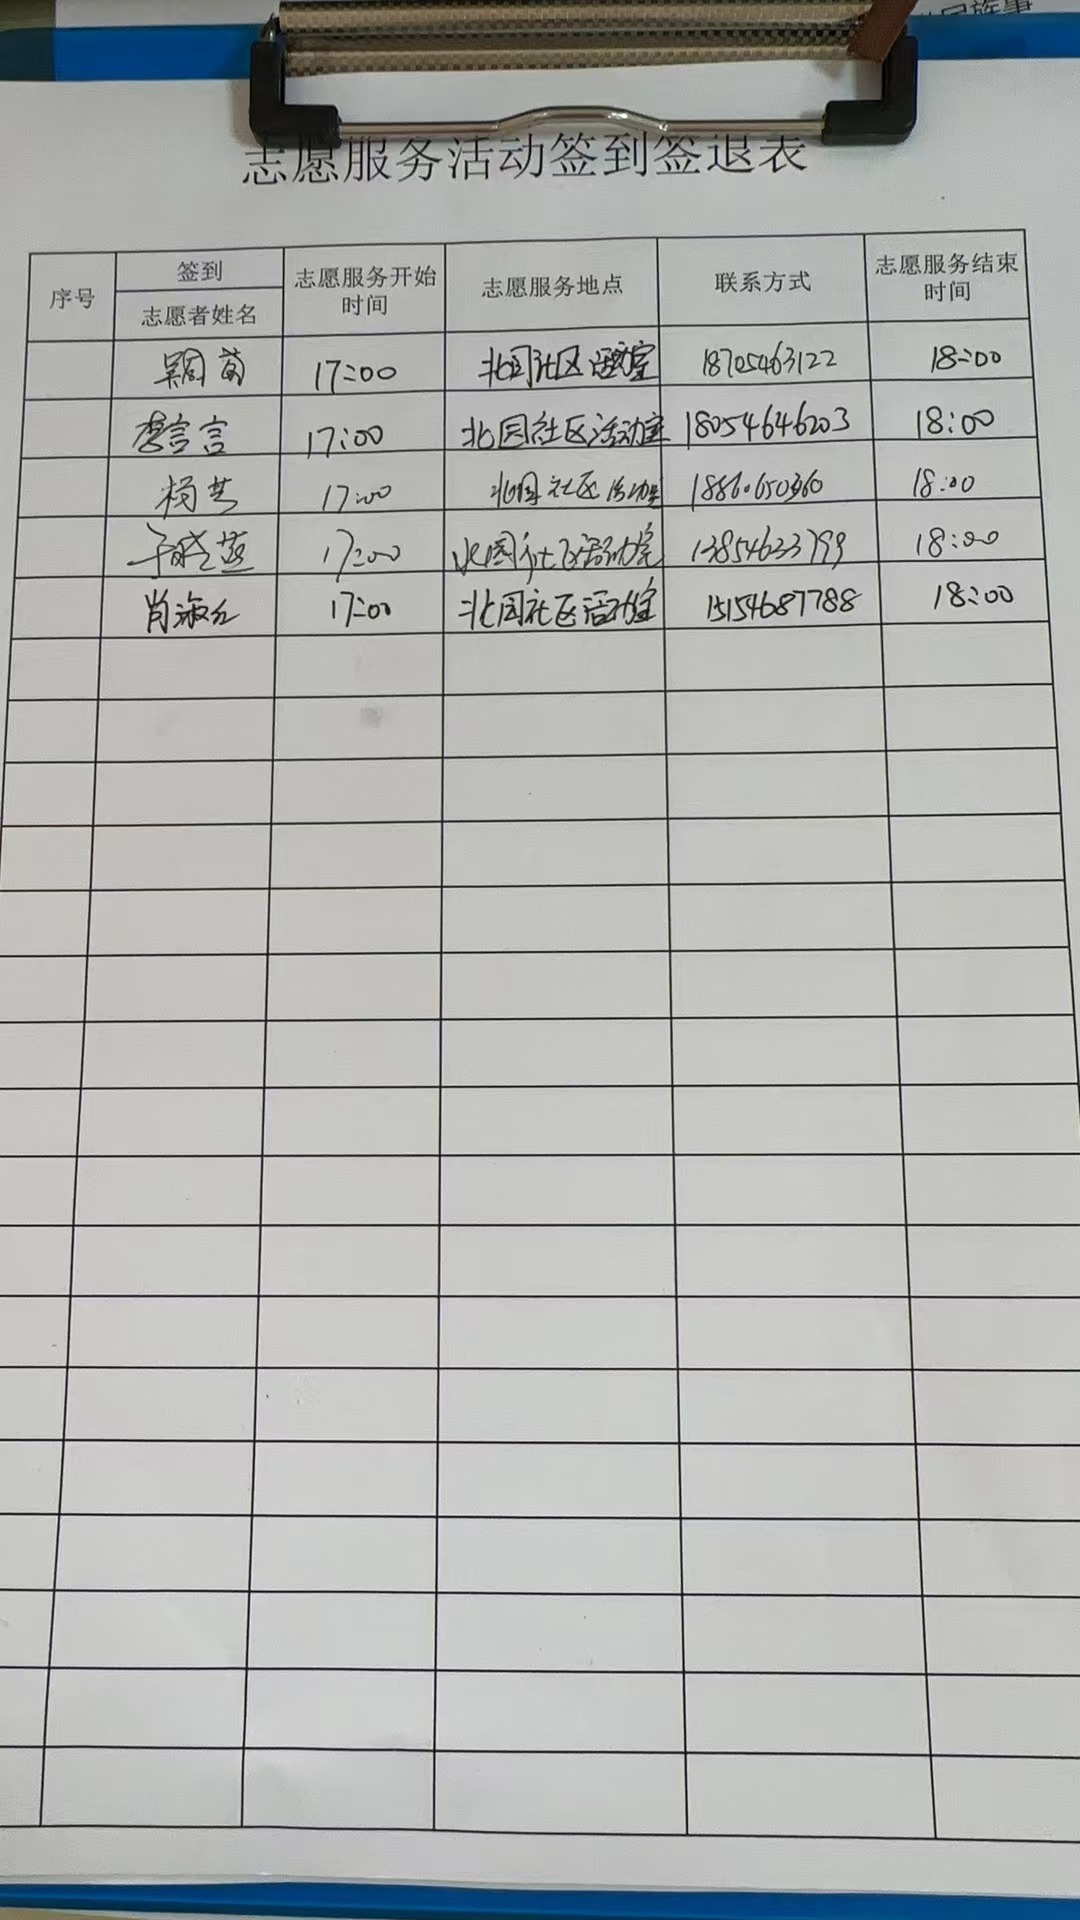 志愿服务活动签到签退表
序号 签到 志愿者姓名 志愿服务开始时间 志愿服务地点 联系方式 志愿服务结束时间
17:00 北园社区活动室 18705463122 18:00
李言言 17:00 北园社区活动室 18054646203 18:00
杨芸 17:00 北园社区活动室 18:00
17:00 北园社区活动室 13854633799 18:00
肖淑红 17:00 北园社区活动室 15154687788 18:00